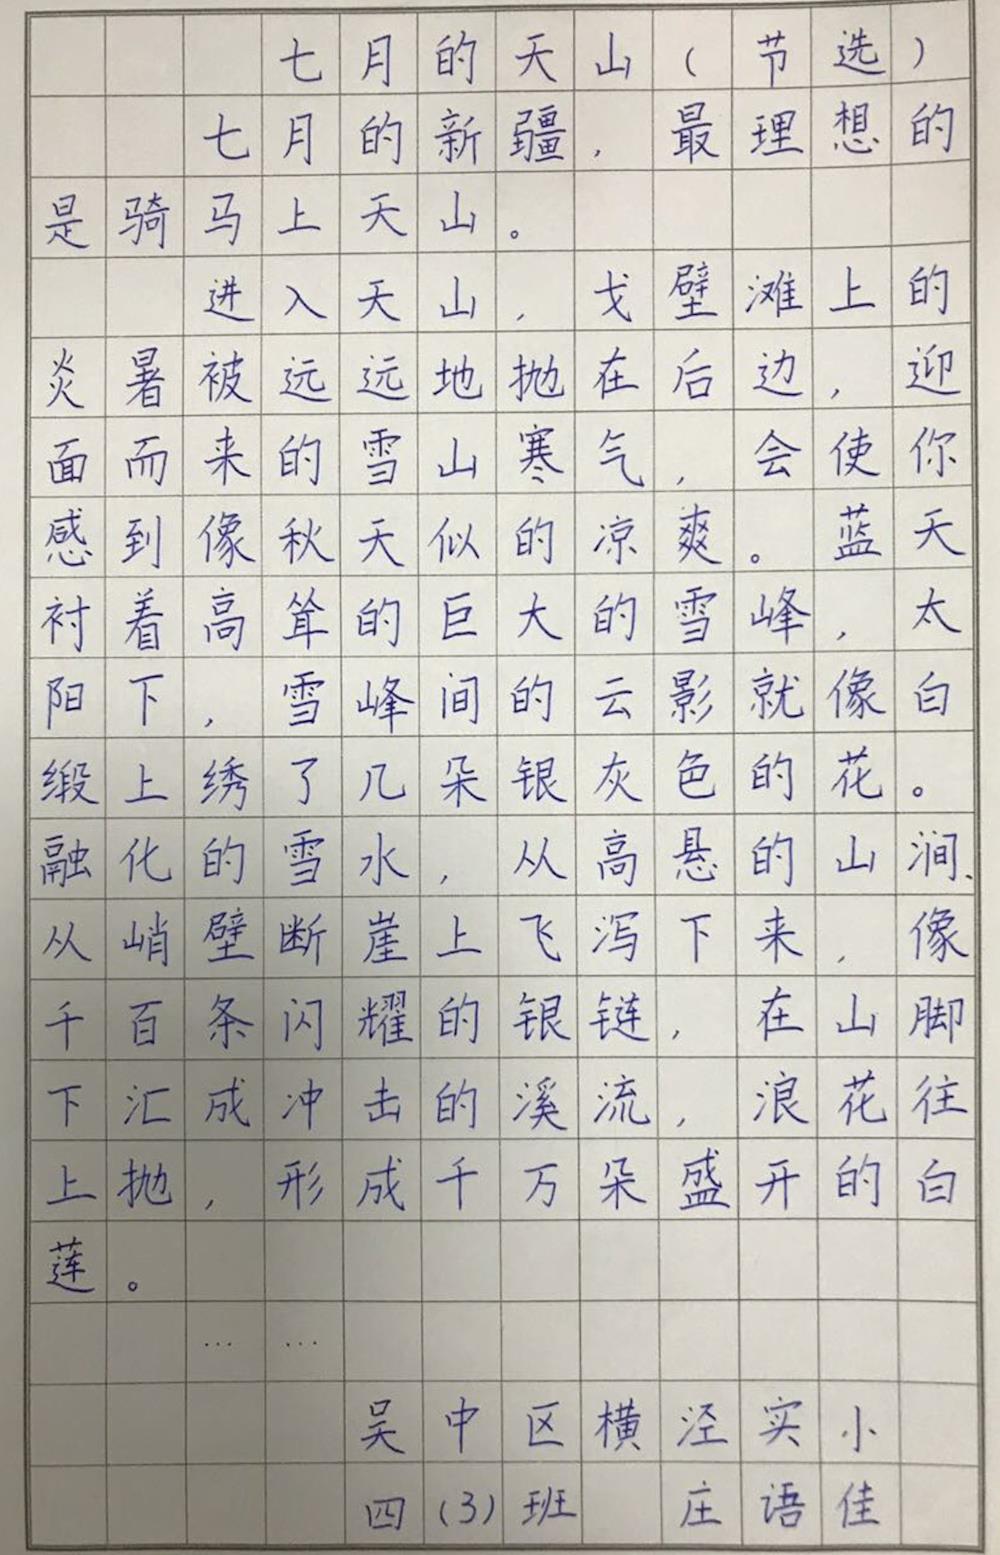 七月的天山(节选)
七月的新疆,最理想的
是骑马上天山。
进入天山,戈壁滩上的
炎暑被远远地抛在后边,迎
面而来的雪山寒气,会使你
感到像秋天似的凉爽。蓝天
衬着高耸的巨大的雪峰,太
阳下,雪峰间的云影就像白
缎上绣了几朵银灰色的花。
融化的雪水,从高悬的山涧、
从峭壁断崖上飞泻下来,像
千百条闪耀的银链,在山脚
下汇成冲击的溪流,浪花往
上抛,形成千万朵盛开的白
莲。
……
吴中区横泾实小
四(3)班 庄语佳